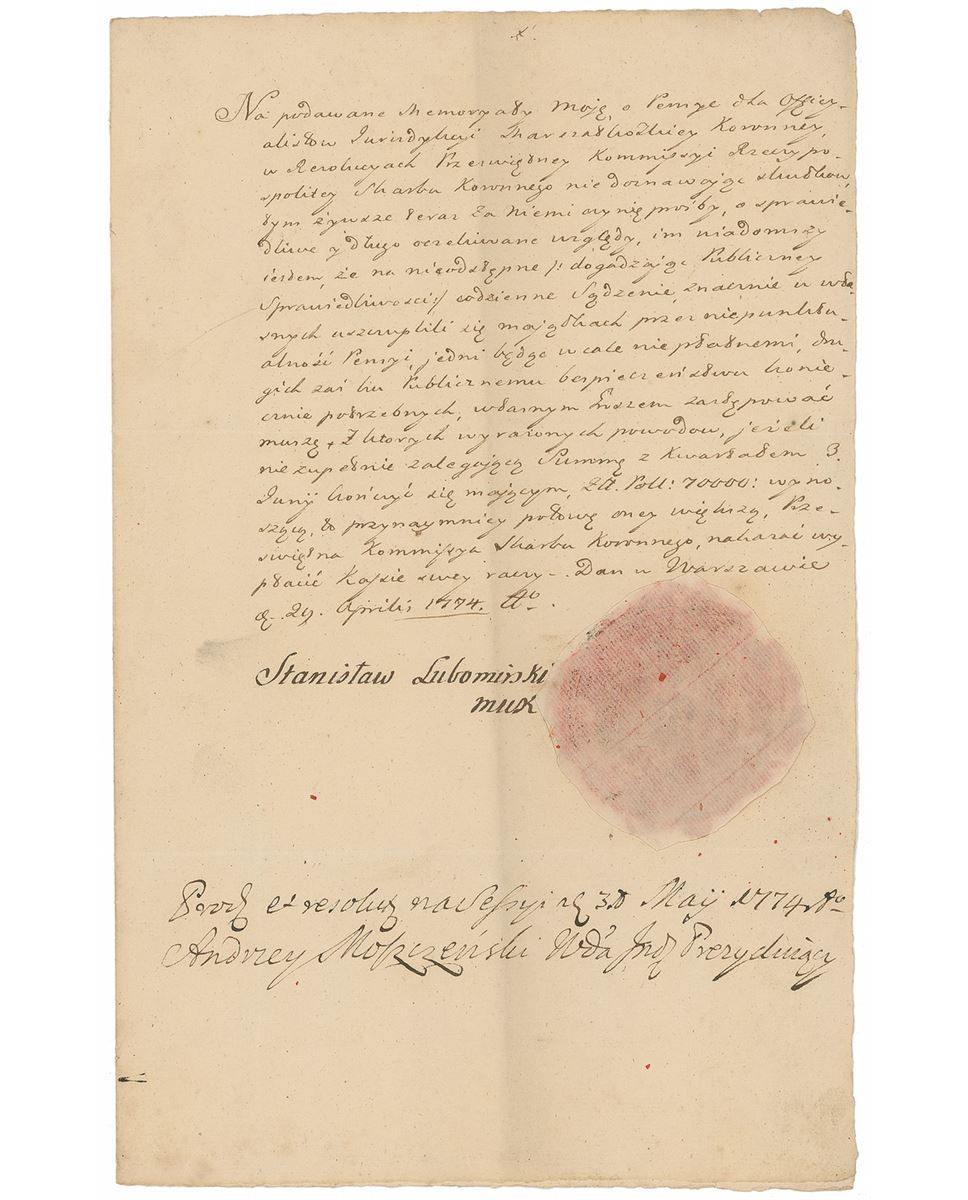 Na podawane Memoryały moje o Pensye dla Officy-
alistow Jurisdykcyi Marszałkowskiey Koronney
w Rezolucyach Przeświętney Kommissyi Rzeczypo-
spolitey Skarbu Koronnego nie doznawając skutkow,
tym żywsze teraz za niemi czynię prośby, o sprawie-
dliwe y długo oczekiwane względy, im wiadomszy
iestem, że na nieodstępne /: dogadzając Publiczney
Sprawiedliwości :/ codzienne Sądzenie, znacznie w wła-
snych uszczuplili się maiątkach przez niepunktu-
alność Pensyi, jedni będąc wcale niepłatnemi, dru-
gich zaś ku Publicznemu bespieczeństwu konie-
cznie potrzebnych, własnym Groszem zastępować
muszę. Z ktorych wyrażonych powodow, jeżeli
nie zupełnie zalegającą Summę z Kwartałem 3.
Junij kończyć się mającym, Złł. Poll: 70000: wyno-
szącą, to przynaymniey połowę oney większą, Prze-
świętna Kommissya Skarbu Koronnego, nakazać wy-
płacić Kassie swey raczy. Dan w Warszawie
d. 29. Aprilis 1774. Ao.
Stanisław Lubomirski
MWK
Prod et resolut na Sessyi d 3 Maij 1774 Ao
Andrzey Moszczeński Wda Ino Prezyduiący